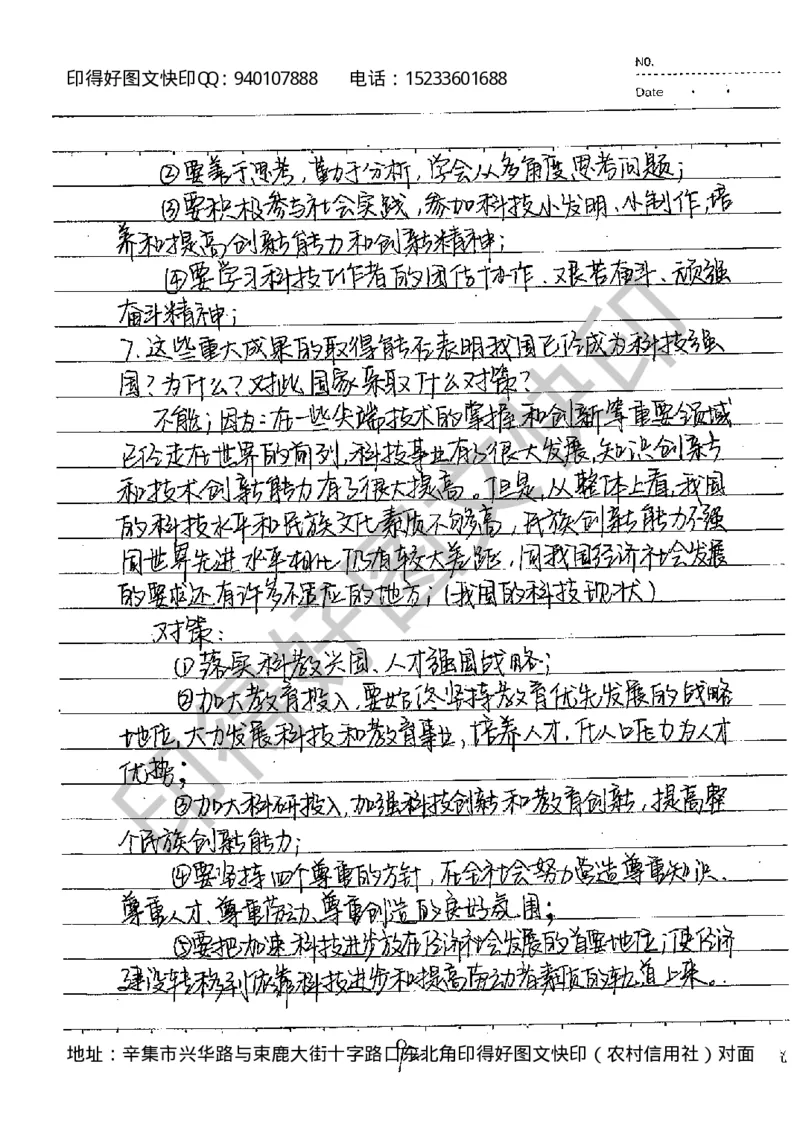 印得好图文快印QQ：940107888 电话：15233601688
NO.
Date
②要善于思考，勤于分析，学会从多角度思考问题；
③要积极参与社会实践，参加科技小发明、小制作，培
养和提高创新能力和创新精神；
④要学习科技工作者的团结协作、艰苦奋斗、顽强
奋斗精神；
7、这些重大成果的取得能否表明我国已经成为科技强
国？为什么？对此国家采取什么对策？
不能；因为：在一些尖端技术的掌握和创新等重要领域
已经走在世界的前列，科技事业有了很大发展，知识创新
和技术创新能力有了很大提高。但是，从整体上看，我国
的科技水平和民族文化素质不够高，民族创新能力不强
同世界先进水平相比仍有较大差距，同我国经济社会发展
的要求还有许多不适应的地方；（我国的科技现状）
对策：
①落实科教兴国、人才强国战略；
②加大教育投入，要始终坚持教育优先发展的战略
地位，大力发展科技和教育事业，培养人才，化人口压力为人才
优势；
③加大科研投入，加强科技创新和教育创新，提高整
个民族创新能力；
④要坚持四个尊重的方针，在全社会努力营造尊重知识、
尊重人才、尊重劳动、尊重创造的良好氛围；
⑤要把加速科技进步放在经济社会发展的首要地位，使经济
建设转移到依靠科技进步和提高劳动者素质的轨道上来。
地址：辛集市兴华路与束鹿大街十字路口东北角印得好图文快印（农村信用社）对面
印得好图文快印